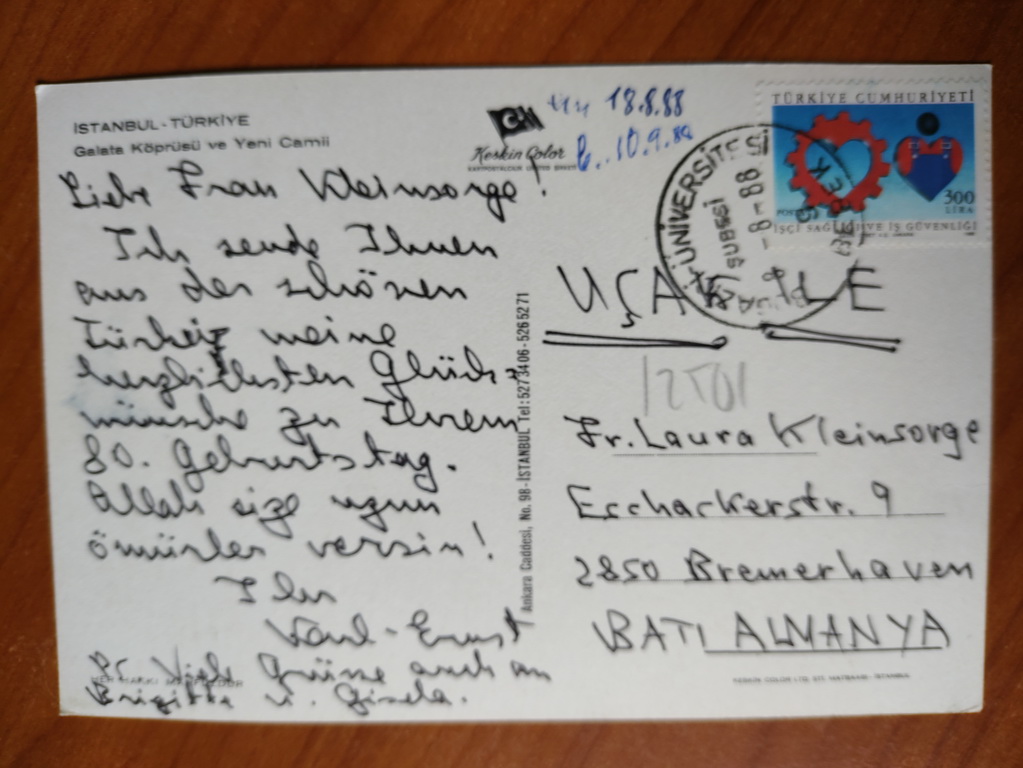 İSTANBUL - TÜRKİYE
Galata Köprüsü ve Yeni Camii
Keskin Color
18.8.88
10.9.88
TÜRKİYE CUMHURİYETİ
300
LİRA
İŞÇİ SAĞLIĞI VE İŞ GÜVENLİĞİ
ÜNİVERSİTESİ
ŞUBESİ
-8-88
Liebe Frau Kleinsorge!
Ich sende Ihnen
aus der schönen
Türkei meine
herzlichsten Glück-
wünsche zu Ihrem
80. Geburtstag.
Allah size uzun
ömürler versin!
Ihr
Karl-Ernst
Viele Grüsse auch an
Brigitte u. Gisela.
Ankara Caddesi, No. 98-İSTANBUL Tel: 5273406-5265271
UÇAK İLE
12501
Fr. Laura Kleinsorge
Eschackerstr. 9
2850 Bremerhaven
BATI ALMANYA